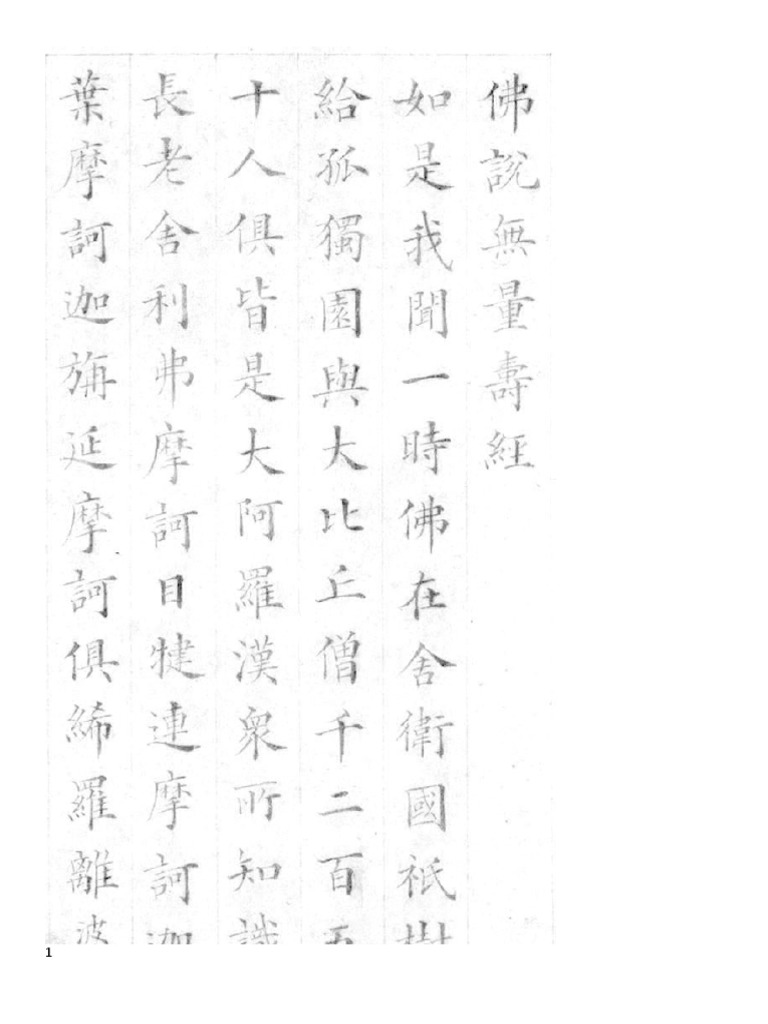 佛說無量壽經
如是我聞一時佛在舍衛國祇樹
給孤獨園與大比丘僧千二百五
十人俱皆是大阿羅漢衆所知識
長老舍利弗摩訶目犍連摩訶迦
葉摩訶迦旃延摩訶俱絺羅離波
1